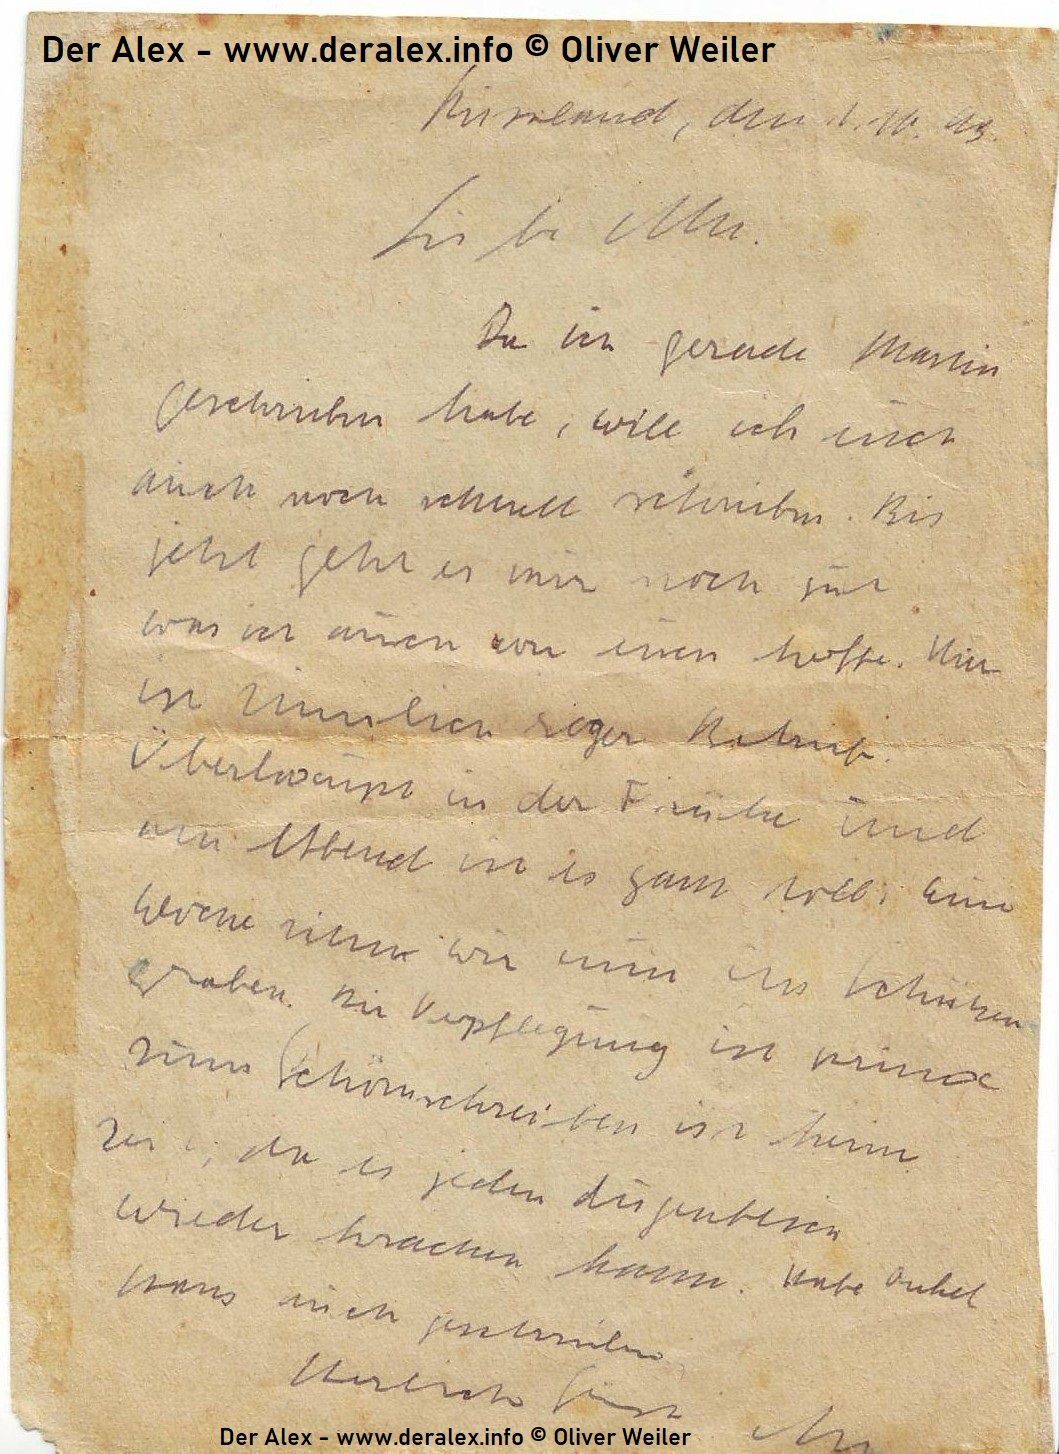 Der Alex - www.deralex.info © Oliver Weiler
Russland, den 1.10.43.
Liebe
Da ich gerade Martin
geschrieben habe, will ich euch
auch noch schnell schreiben. Bis
jetzt geht es mir noch gut
was ich auch von euch hoffe. Hier
ist ziemlich reger Betrieb.
Überhaupt in der Frühe und
am Abend ist es ganz toll. Eine
Woche sitzen wir nun ins Schützen
graben. Die Verpflegung ist prima
zum Schönschreiben ist keine
Zeit, da es jeden Augenblick
wieder krachen kann. Habe Onkel
Hans auch geschrieben
Herzlich Grüsst
Der Alex - www.deralex.info © Oliver Weiler